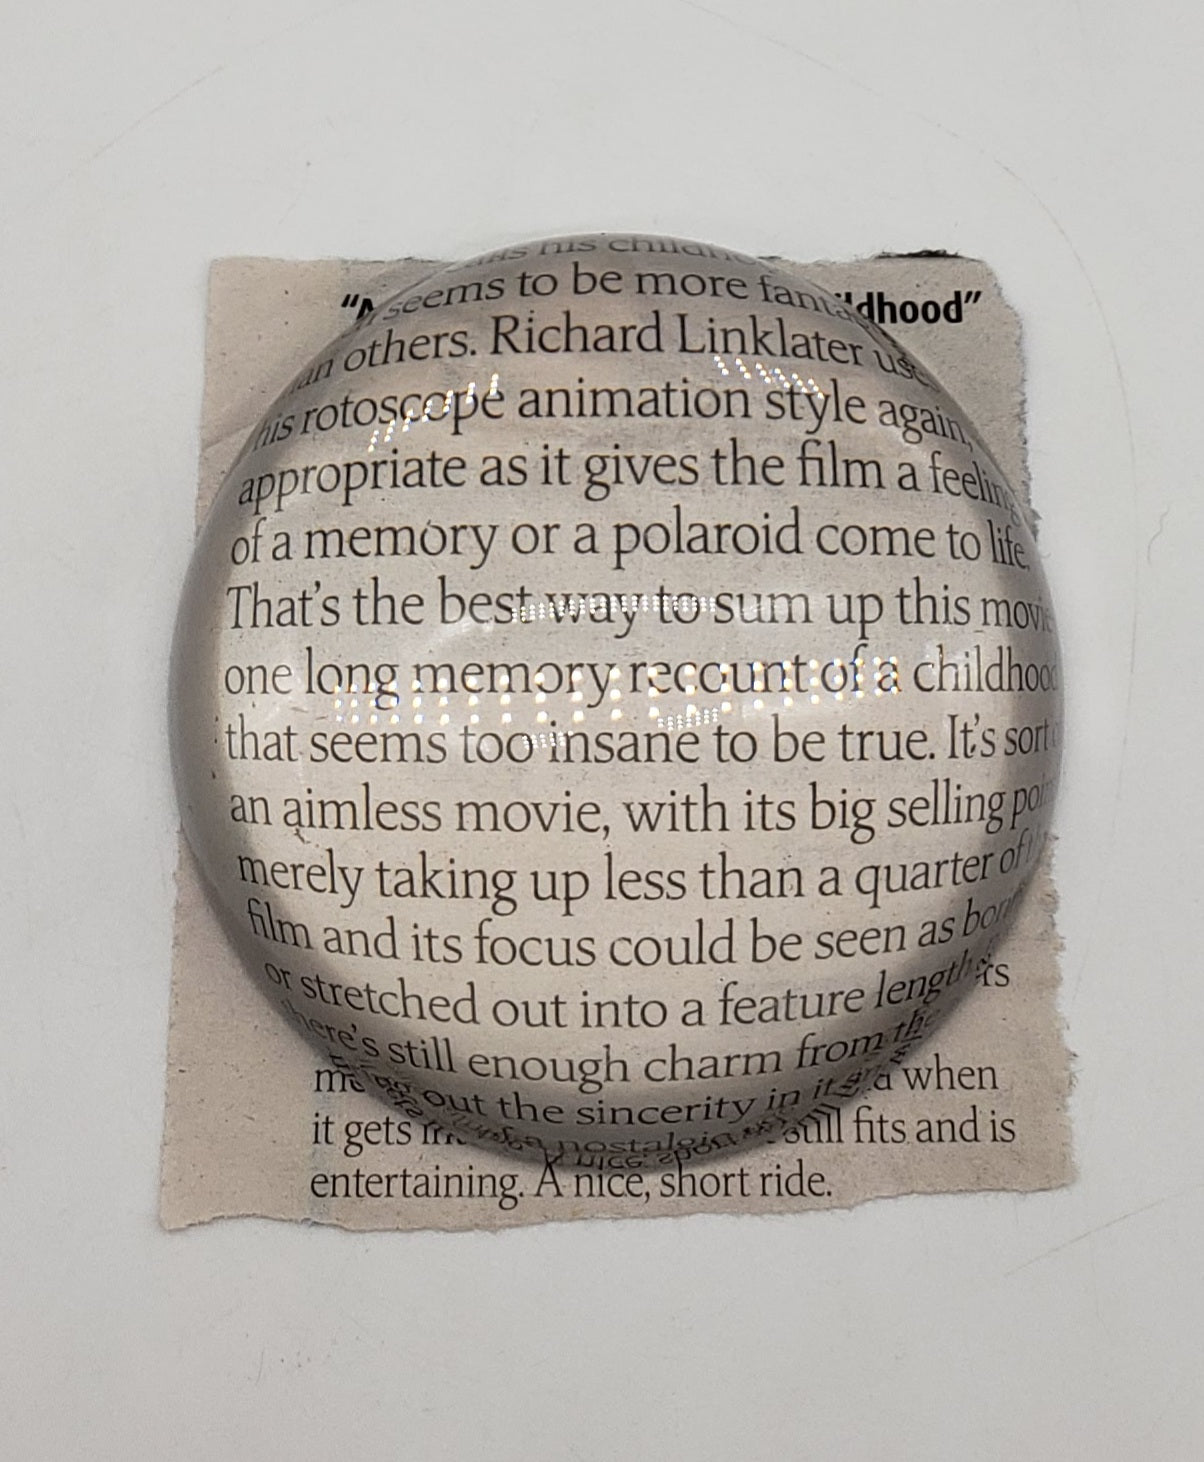 dhood"
his childh
seems to be more fanta
an others. Richard Linklater use
his rotoscope animation style again,
appropriate as it gives the film a feeling
of a memory or a polaroid come to life.
That's the best way to sum up this movi
one long memory recount of a childhood
that seems too insane to be true. It's sort
an aimless movie, with its big selling poi
merely taking up less than a quarter of
film and its focus could be seen as bor
or stretched out into a feature length
here's still enough charm from the
out the sincerity in it
nostalgic
when
it gets still fits and is
entertaining. A nice, short ride.